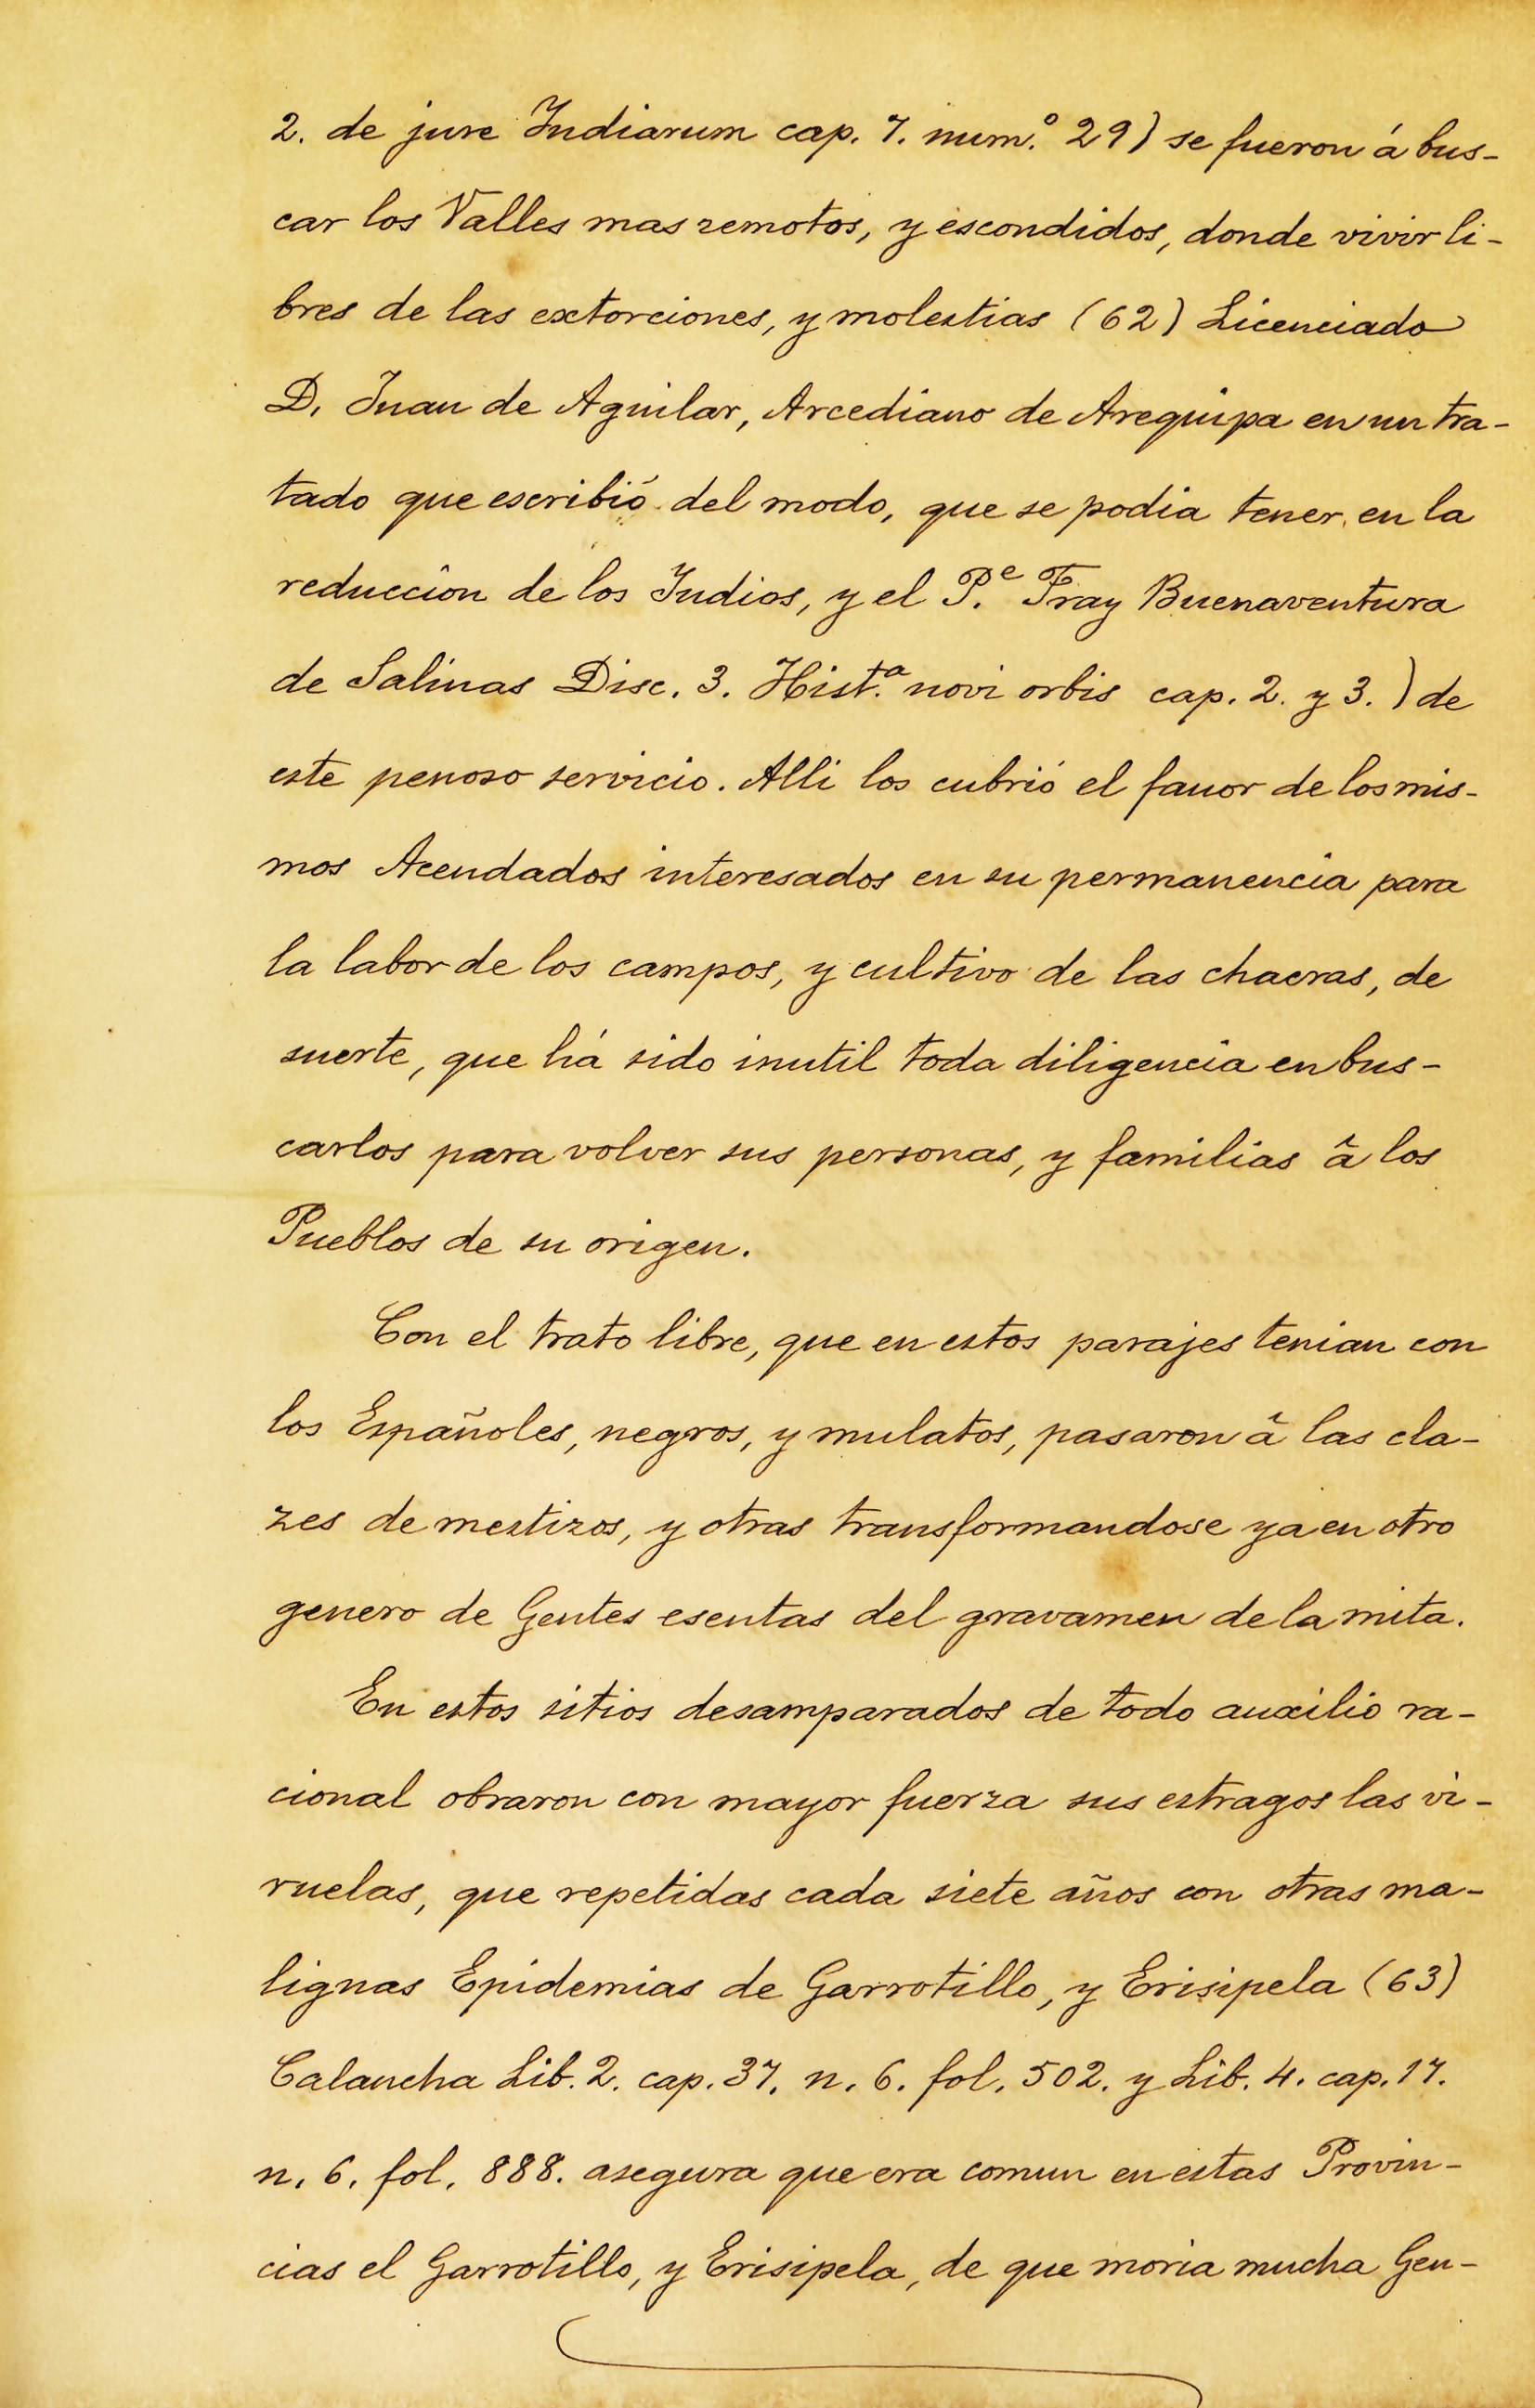 2. de jure Indiarum cap. 7. num.º 29) se fueron á bus-
car los Valles mas remotos, y escondidos, donde vivir li-
bres de las extorciones, y molestias (62) Licenciado
D. Juan de Aguilar, Arcediano de Arequipa en un tra-
tado que escribió del modo, que se podia tener en la
reduccîon de los Indios, y el P.e Fray Buenaventura
de Salinas Disc. 3. Hist.a novi orbis cap. 2. y 3. ) de
este penoso servicio. Alli los cubrió el fauor de los mis-
mos Acendados interesados en su permanencia para
la labor de los campos, y cultivo de las chacras, de
suerte, que há sido inutil toda diligencia en bus-
carlos para volver sus personas, y familias â los
Pueblos de su origen.
Con el trato libre, que en estos parajes tenian con
los Españoles, negros, y mulatos, pasaron â las cla-
zes de mestizos, y otras transformandose ya en otro
genero de Gentes esentas del gravamen de la mita.
En estos sitios desamparados de todo auxilio ra-
cional obraron con mayor fuerza sus estragos las vi-
ruelas, que repetidas cada siete años con otras ma-
lignas Epidemias de Garrotillo, y Erisipela (63)
Calancha Lib. 2. cap. 37. n. 6. fol. 502. y Lib. 4. cap. 17.
n. 6. fol. 888. asegura que era comun en estas Provin-
cias el Garrotillo, y Erisipela, de que moria mucha Gen-